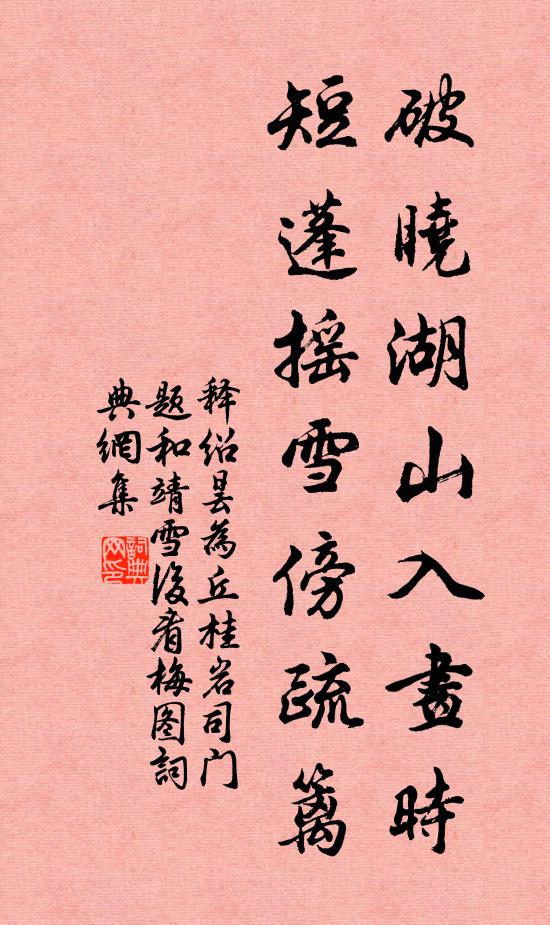 破曉湖山入畫時
短蓬搖雪傍疏籬
释绍昙為丘桂岩司门
题和靖雪後看梅图詞
典網集
詞典网印